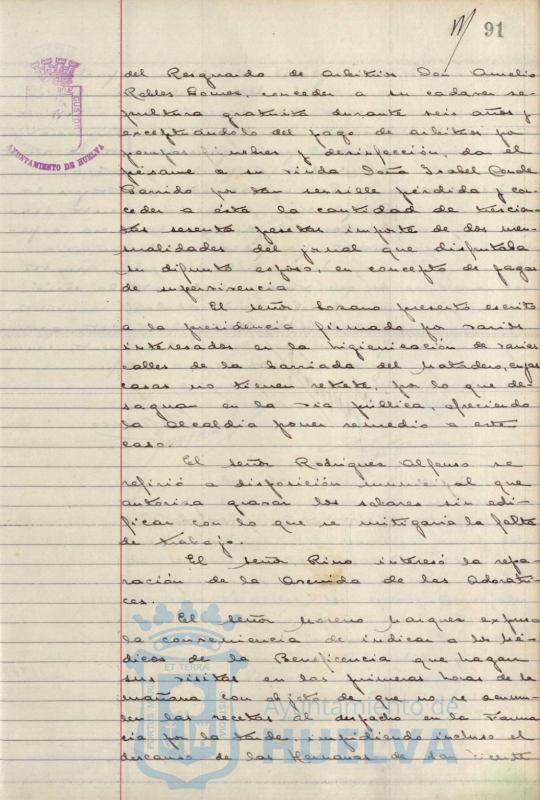 91
del Resguardo de Arbitrios Don Amelio
Robles Gomes, conceder a su cadaver se-
pultura gratuita durante seis años y
exceptuándolo del pago de arbitrios por
pompas fúnebres y desinfección, dar el
pésame a su viuda Doña Isabel Conde
Garrido por tan sensible pérdida y con-
ceder a ésta la cantidad de trescien-
tas sesenta pesetas importe de dos men-
sualidades del jornal que disfrutaba
su difunto esposo, en concepto de pagas
de supervivencia
El señor Lozano presentó escrito
a la presidencia firmado por varios
interesados en la higienización de varias
calles de la barriada del Matadero, cuyas
casas no tienen retrete, por lo que de-
saguan en la via pública, ofreciendo
la Alcaldía poner remedio a este
caso.
El señor Rodriguez Alfonso se
refirió a disposición municipal que
autoriza gravar los solares sin edi-
ficar con lo que se mitigaria la falta
de trabajo.
El señor Pino interesó la repa-
ración de la Avenida de las Adoratri-
ces.
El señor Moreno Marquez expuso
la conveniencia de indicar a los Mé-
dicos de la Beneficencia que hagan
sus visitas en las primeras horas de la
mañana con objeto de que no se acumu-
len las recetas al despacho en la Farma-
cia por la tarde impidiendo incluso el
descanso de las Hermanas de San Vicente
AYUNTAMIENTO DE HUELVA
Ayuntamiento de
HUELVA